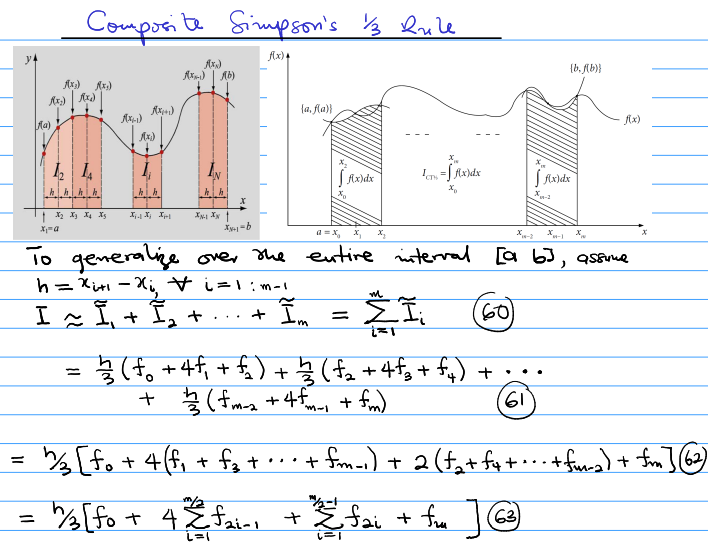 Composite Simpson's 1/3 Rule
y
f(a)
f(x₂)
f(x₃)
f(x₄)
f(x₅)
f(xᵢ₋₁)
f(xᵢ)
f(xᵢ₊₁)
f(x_{N-1})
f(x_N)
f(b)
I₂ I₄ Iᵢ I_N
h h h h h h h h
x
x₁=a x₂ x₃ x₄ x₅ xᵢ₋₁ xᵢ xᵢ₊₁ x_{N-1} x_N x_{N+1}=b
f(x)
{a, f(a)}
{b, f(b)}
f(x)
∫_{x₀}^{x₂} f(x)dx
I_{CT⅜} = ∫_{x₀}^{x_m} f(x)dx
∫_{x_{m-2}}^{x_m} f(x)dx
a = x₀ x₁ x₂ x_{m-2} x_{m-1} x_m x
To generalize over the entire interval [a b], assume
h = x_{i+1} - x_i, ∀ i = 1 : m-1
I ≈ Ĩ₁ + Ĩ₂ + ... + Ĩ_m = Σ_{i=1}^{m} Ĩ_i (60)
= h/3 (f₀ + 4f₁ + f₂) + h/3 (f₂ + 4f₃ + f₄) + ...
+ h/3 (f_{m-2} + 4f_{m-1} + f_m) (61)
= h/3 [f₀ + 4(f₁ + f₃ + ... + f_{m-1}) + 2(f₂ + f₄ + ... + f_{m-2}) + f_m] (62)
= h/3 [f₀ + 4 Σ_{i=1}^{m/2} f_{2i-1} + Σ_{i=1}^{m/2-1} f_{2i} + f_m] (63)